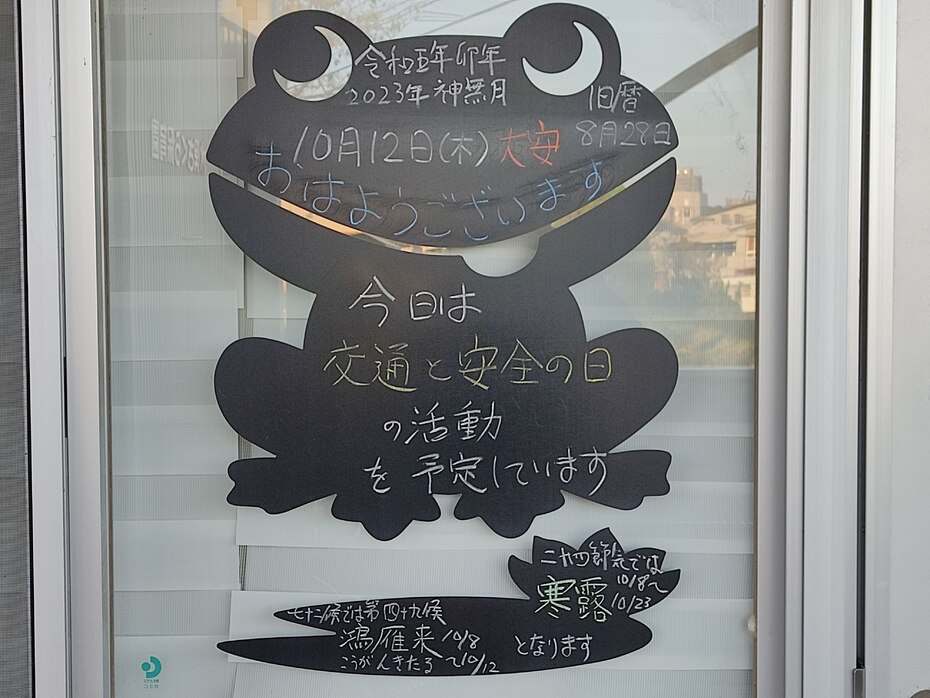 令和五年卯年
2023年神無月
旧暦
8月28日
10月12日(木)大安
おはようございます
今日は
交通と安全の日
の活動
を予定しています
二十四節気では
寒露
10/8~
10/23
七十二候では第四十九候
鴻雁来 10/8
こうがんきたる ~10/12
となります